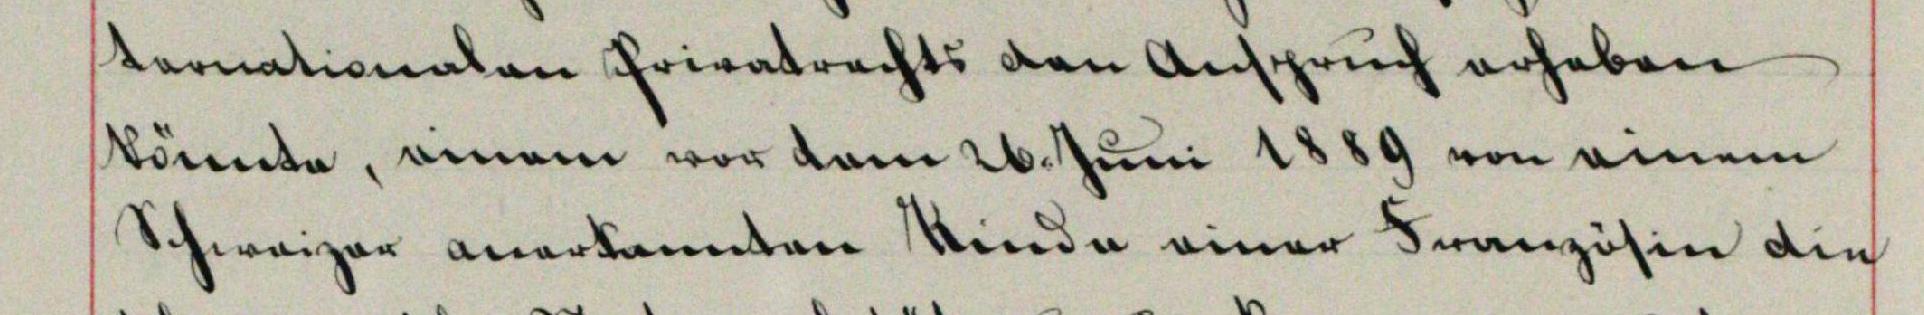 ternationalen Privatrechts den Anspruch erheben
könnte, einem vor dem 26. Juni 1889 von einem
Schweizer anerkannten Kinde einer Französin die